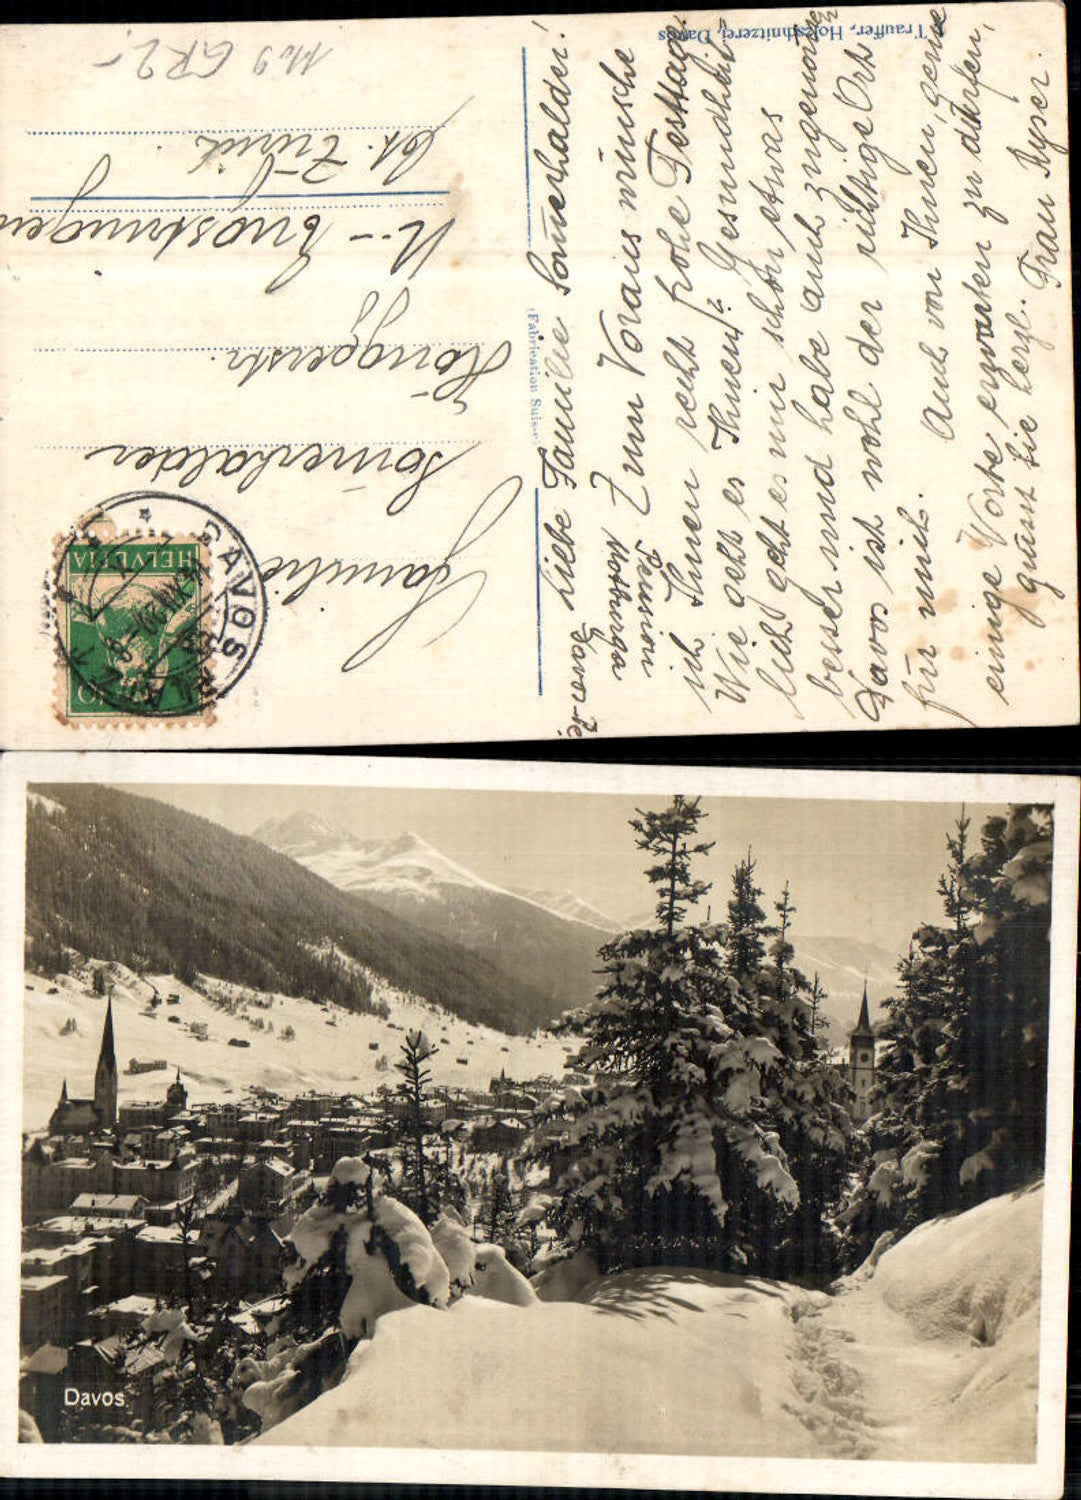 Liebe Familie Sommerhalder!
Zum Voraus wünsche
ich Ihnen recht frohe Festtage.
Wie geht es Ihnen? Gesundheit-
lich geht es mir schon etwas
besser und habe auch zugenommen
Davos ist wohl der richtige Ort
für mich. Auch von Ihnen, gerne
einige Worte erwarten zu dürfen,
grüsst Sie herzl. Frau Ryser.
Pension
Davos
Familie
Somerhalder
Hönggerstr.
U.-Engstringen
Kt. Zürich
GR2.-
Trauffer, Holzschnitzerei, Davos
(Fabrication Suisse)
HELVETIA
DAVOS
PLATZ
Davos